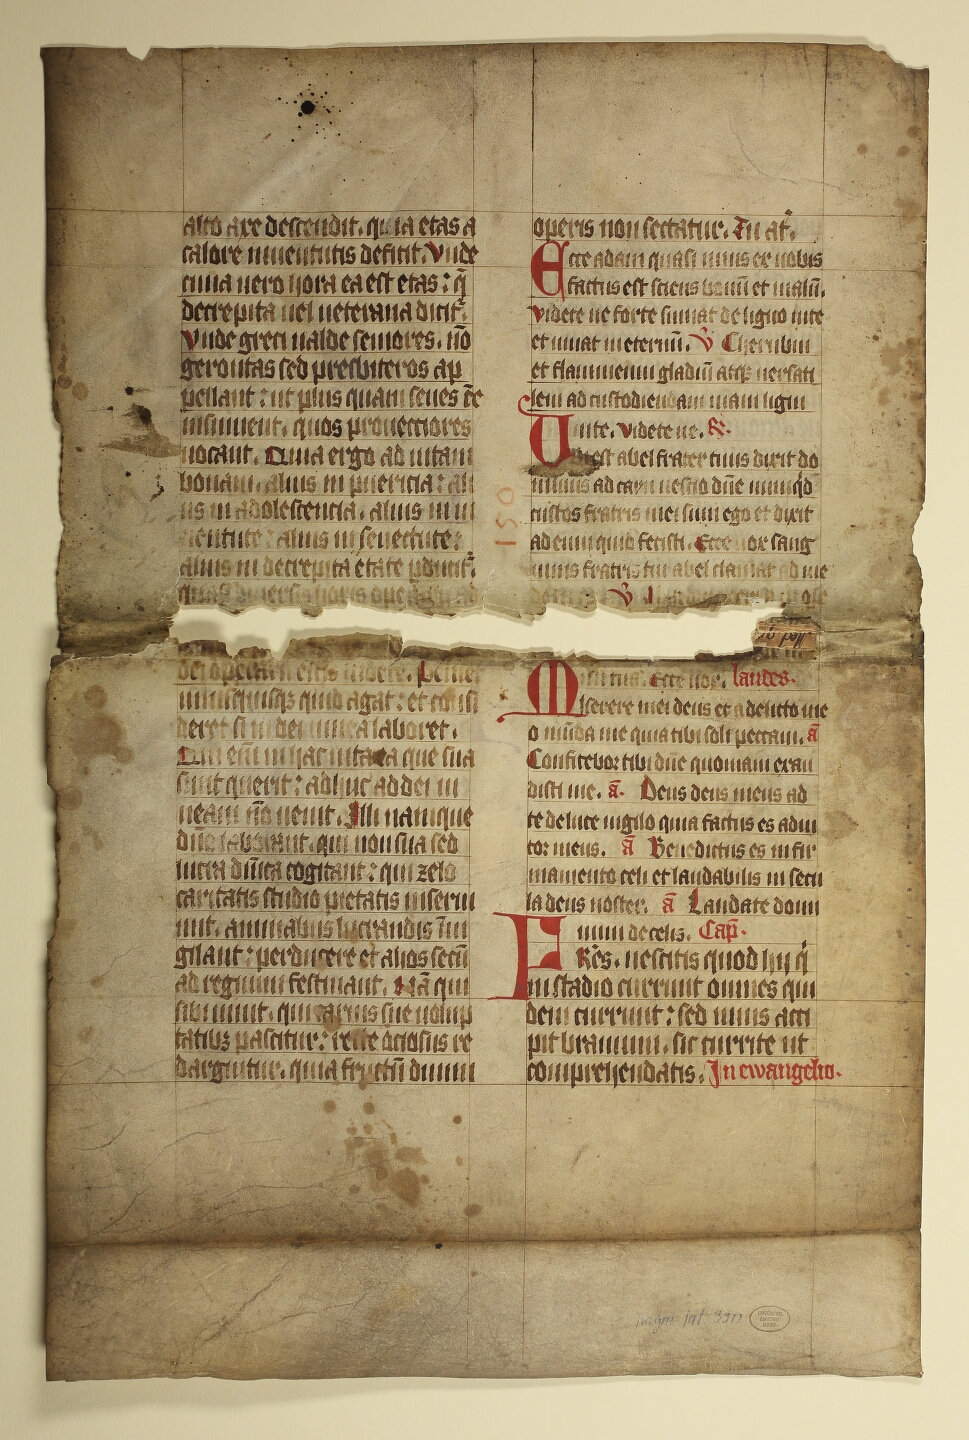 alto axe descendit. quia etas a
calore iuuentutis deficit. Vnde
cima uero hora ea est etas: q̄
decrepita uel ueterana dicit̉.
Vnde greci ualde seniores. nō
gerontas sed presbiteros ap
pellant: ut plus quam senes
insinuent. quos prouectiores
uocant. Quia ergo ad uitam
bonam. alius in puericia: ali
us in adolescencia. alius in iu
uentute: alius in senectute:
alius in decrepita etate
dei operari est uidere. Penset
unusquisqz quid agat: et consi
deret si in dei uinea laboret.
Qui eni in hac uita ea que sua
sunt querit: adhuc ad dei ui
neam nō uenit. Illi namque
dn̄o laborant. qui non sua sed
lucra dn̄ica cogitant: qui zelo
caritatis studio pietatis inseruiu
unt. animabus lucrandis
gilant: perducere et alios secū
ad regnum festinant. Nā qui
sibi uiuit. qui carnis sue uolup
tatibz pascitur: recte ociosus re
darguitur. quia fructū diuini
operis non sectatur. Tu at̉.
Ecce adam quasi unus ex nobis
factus est sciens bonū et malū.
videte ne forte sumat de ligno uite
et uiuat in eternū. V̄ Cherubin
et flammeum gladiū atqz uersati
lem ad custodiendam uiam ligni
Uite. videte ne. R̄.
Ubi est abel frater tuus dixit do
minus ad cayn nescio dn̄e nunqd
custos fratris mei sum ego et dixit
ad eum quid fecisti. Ecce uox sang
uinis fratris tui abel clamat ad me
de terra. V̄
150
Ecce uox. laudes.
Miserere mei deus et a delicto me
o mūda me quia tibi soli peccaui. ā
Confitebor tibi dn̄e quoniam exau
disti me. ā. Deus deus meus ad
te de luce uigilo quia factus es adiu
tor meus. ā Benedictus es in fir
mamento celi et laudabilis in secu
la deus noster. ā Laudate domi
num de celis. Cap̄.
Fr̄es. nescitis quod hij q̇
in stadio currunt omnes qui
dem currunt: sed unus acci
pit brauium. sic currite ut
comprehendatis. In ewangelio.